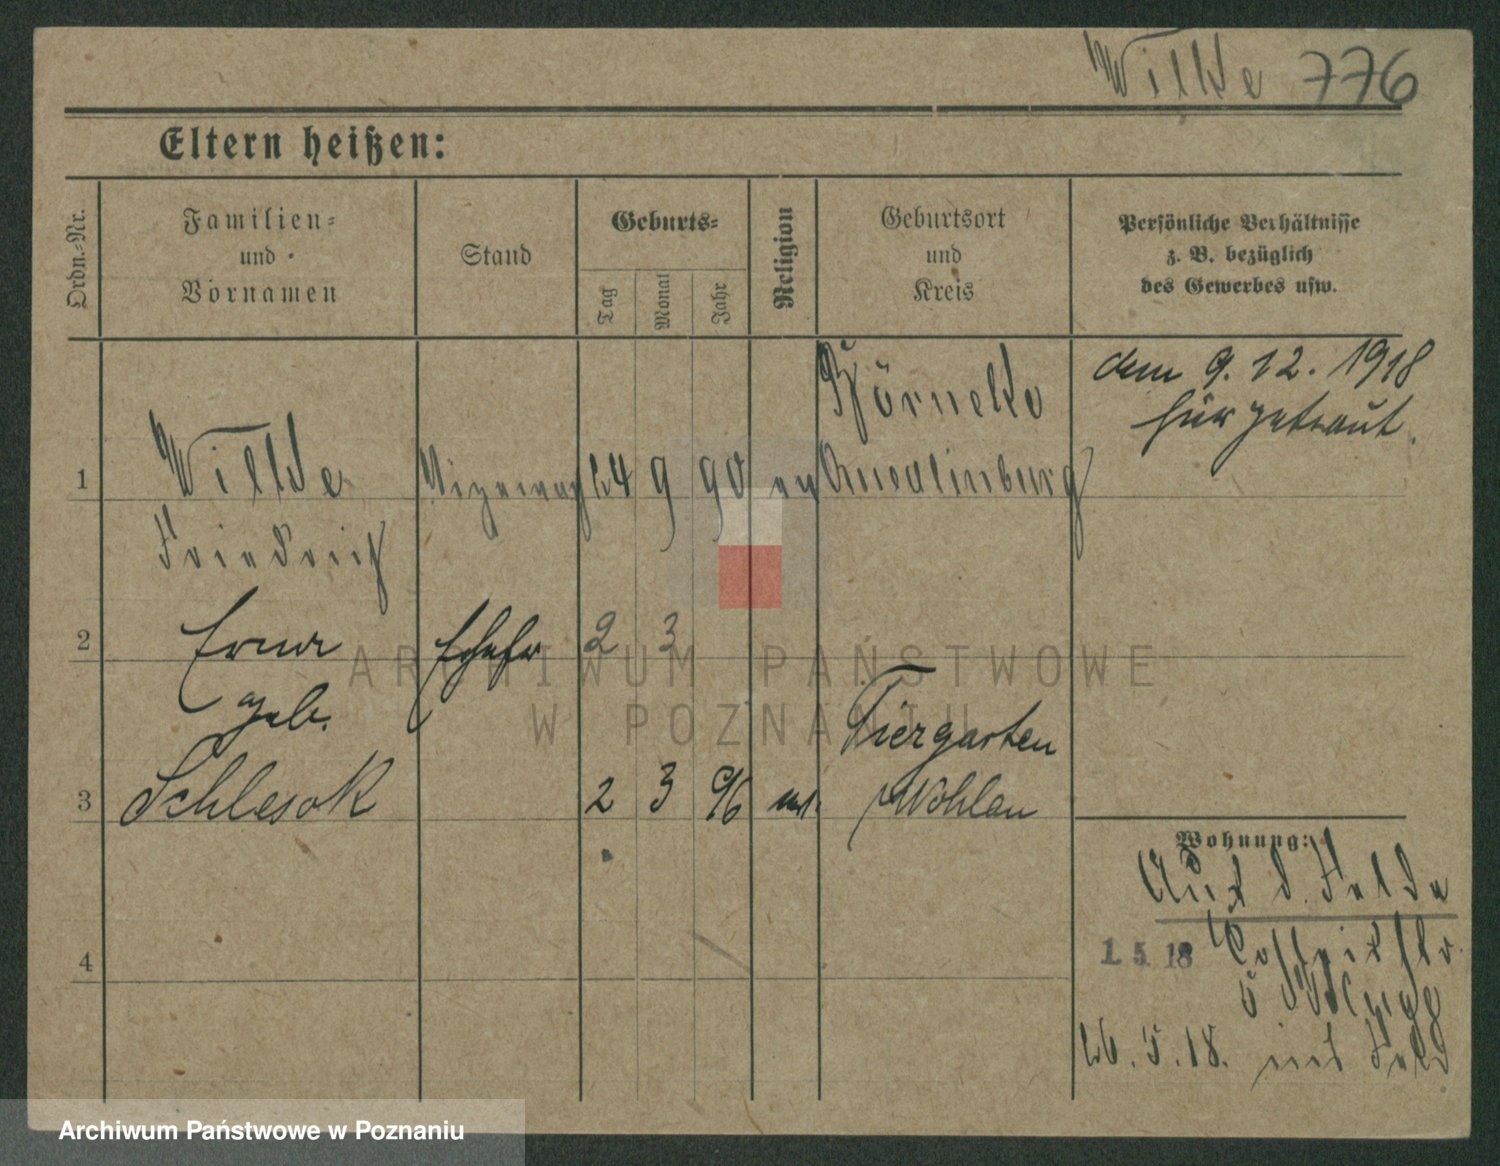 Wilke 776
Eltern heißen:
Ordn.-Nr.
Familien-
und
Vornamen
Stand
Geburts-
Tag
Monat
Jahr
Religion
Geburtsort
und
Kreis
Persönliche Verhältnisse
z. B. bezüglich
des Gewerbes usw.
den 9. 12. 1918
hier getraut.
1
Wilke
24 9 90 ev
Quedlinburg
Friedrich
2
Erna
Ehefr
2 3
geb.
Tiergarten
3
Schlesok
2 3 96
Wohlau
Wohnung:
Feld
1. 5. 18
4
26. 5. 18. ins Feld
ARCHIWUM PAŃSTWOWE
W POZNANIU
Archiwum Państwowe w Poznaniu